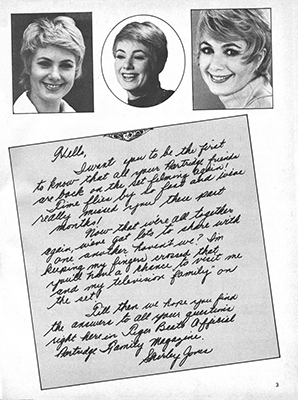 Hello,
I want you to be the first
to know that all your Partridge friends
are back on the set filming again!
Time flies by so fast and we've
really missed you these past
months!
Now that we're all together
again, we've got lots to share with
one another haven't we! I'm
keeping my fingers crossed that
you'll have a chance to visit me
and my television family on
the set!
Till then we hope you find
the answers to all your questions
right here in Tiger Beat's Official
Partridge Family Magazine.
Shirley Jones
3